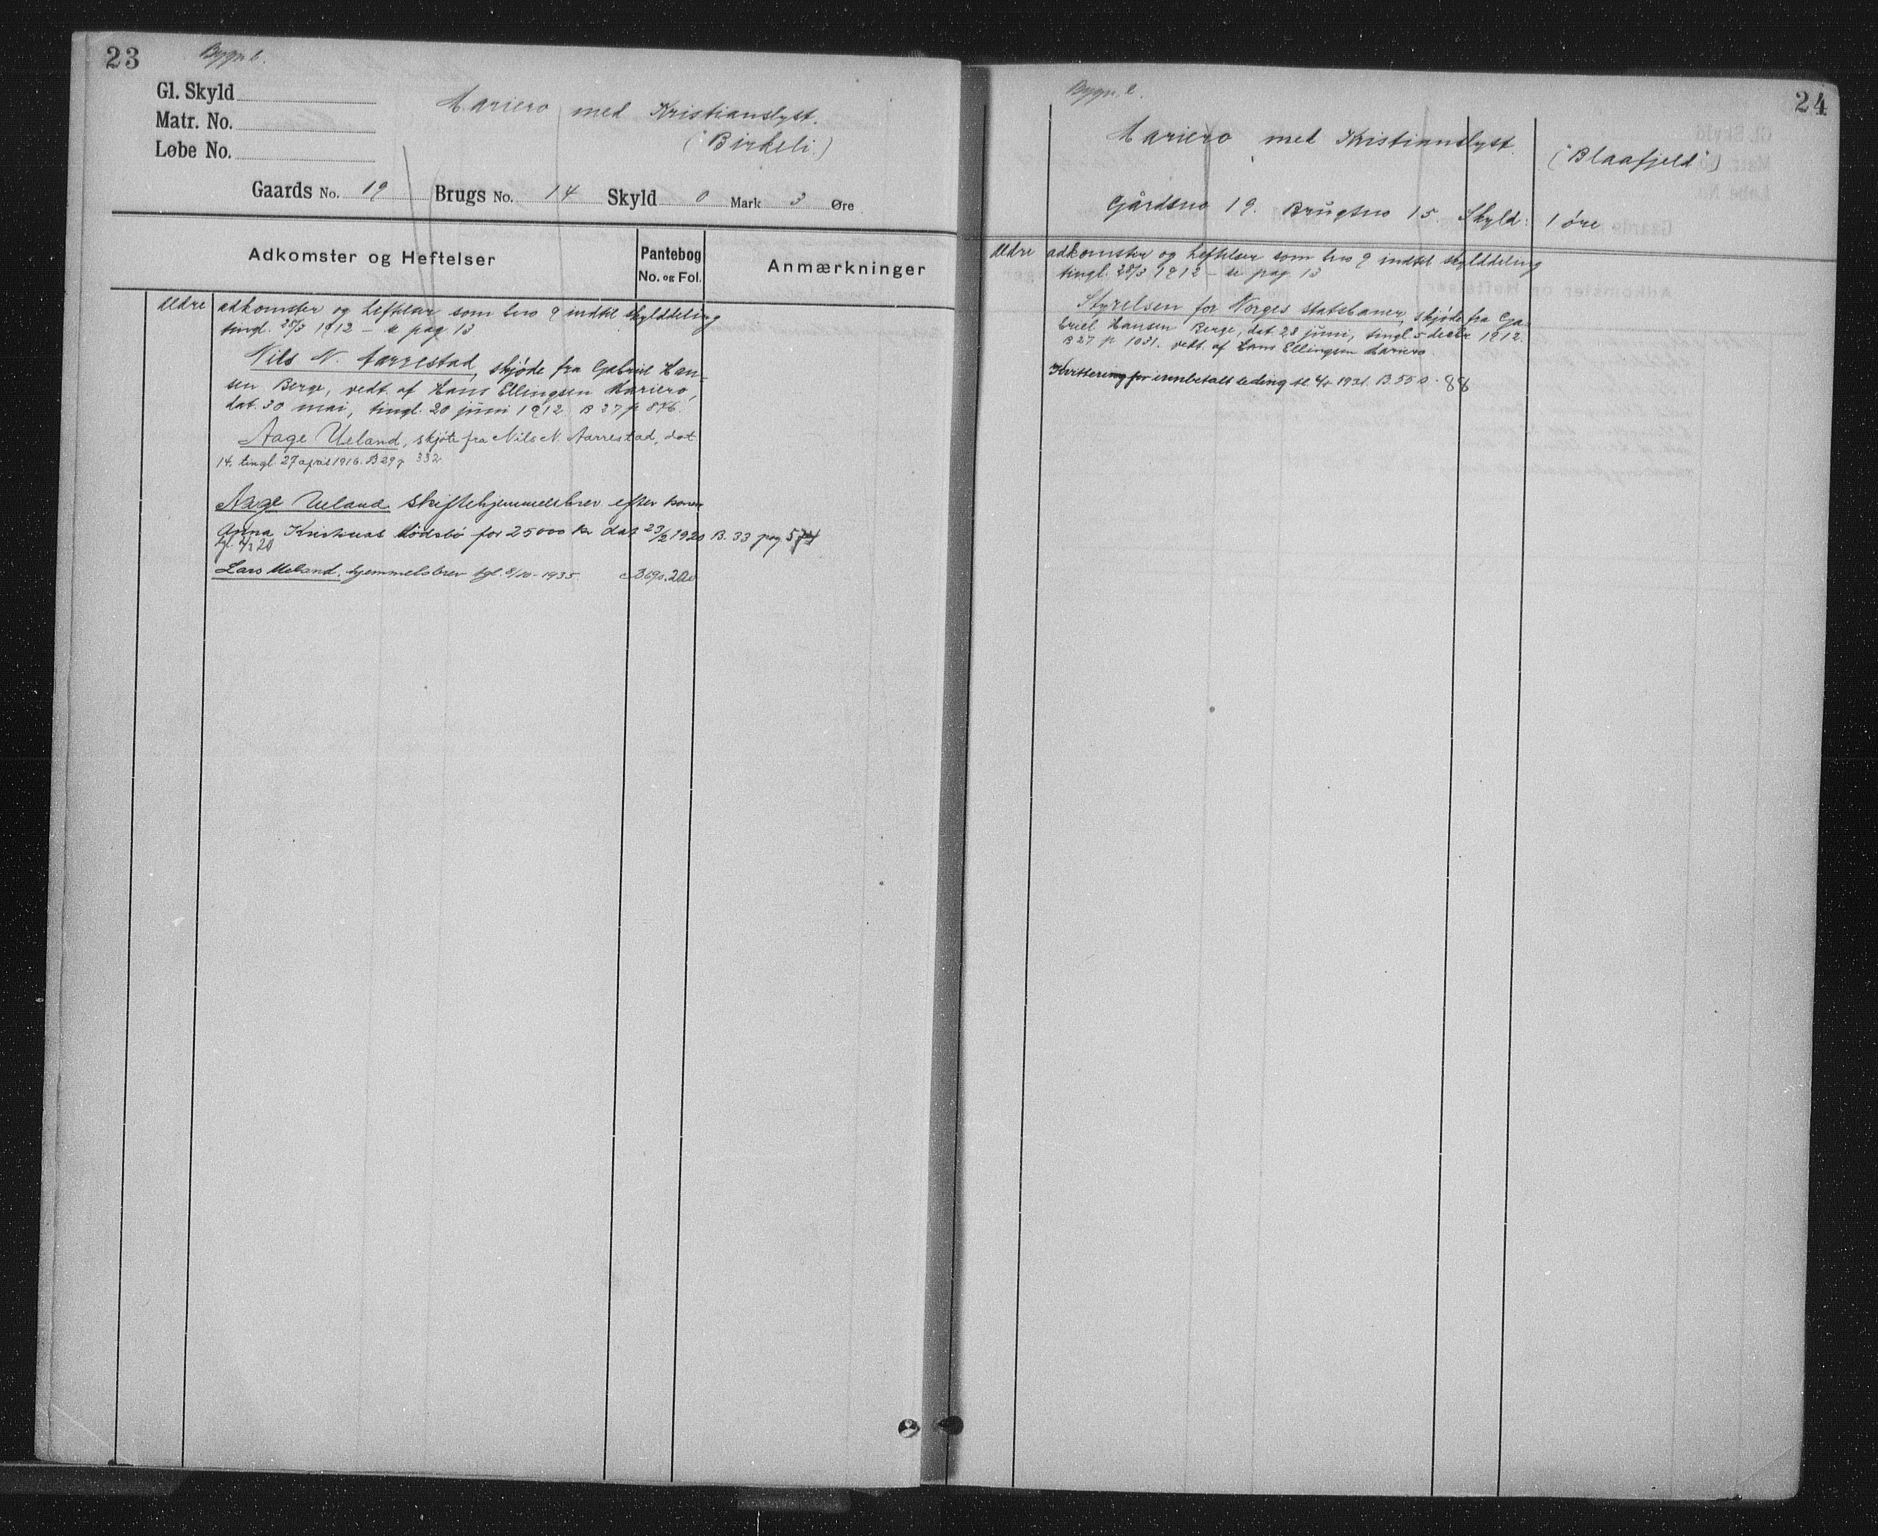 23
Bygn.l.
Gl. Skyld
Matr. No.
Løbe No.
Mariero med Kristianslyst.
("Birkeli")
Gaards No. 19 Brugs No. 14 Skyld 0 Mark 3 Øre
Adkomster og Heftelser
Pantebog
No. og Fol.
Anmærkninger
Ældre adkomster og heftelser som bno 9 indtil skylddeling
tingl. 28/3 1912 - se pag 13
Nils N. Aarrestad, skjøde fra Gabriel Han-
sen Berge, vedt. af Hans Ellingsen Mariero,
dat. 30 mai, tingl. 20 juni 1912. B 27 p 876.
Aage Ueland, skjøte fra Nils N. Aarrestad, dat
14. tingl 27 april 1916. B 29 p 332
Aage Ueland skiftehjemmelsbrev efter kone
Anna dødsbo for 25000 kr dat 23/2 1920 B. 33 pag
Lars Ueland, hjemmelsbrev tgl. 8/10-1935.
24
Bygn.l.
Mariero med Kristianslyst.
("Blaafjeld")
Gårdsno 19. Brugsno 15. Skyld: 1 øre
Ældre adkomster og heftelser som bno 9 indtil skylddeling
tingl. 28/3 1912 - se pag 13
Styrelsen for Norges Statsbaner, skjøde fra Ga-
briel Hansen Berge, dat 28 juni, tingl 5 decbr 1912.
B 27 p 1031. vedt. af Hans Ellingsen Mariero.
Kvittering for innbetalt leding tl. 1931. B. 55 p. 88